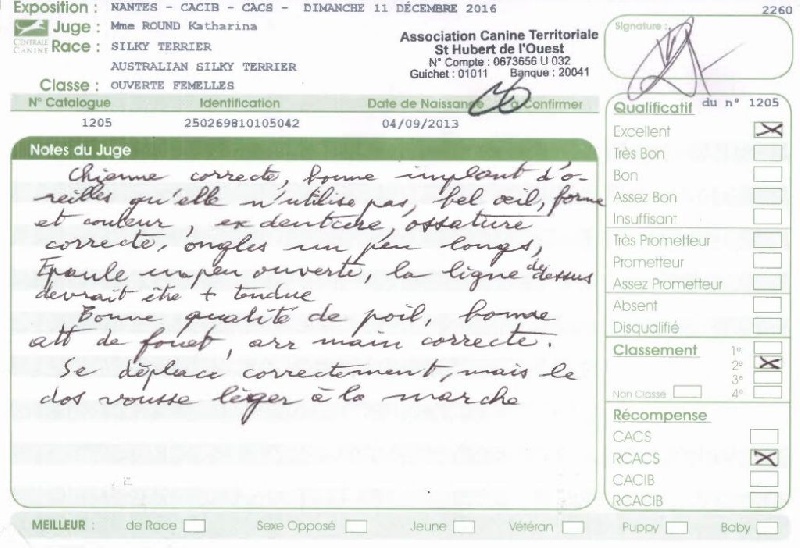 Exposition : NANTES - CACIB - CACS - DIMANCHE 11 DÉCEMBRE 2016
2260
Juge : Mme ROUND Katharina
CENTRALE CANINE
Race : SILKY TERRIER
AUSTRALIAN SILKY TERRIER
Classe : OUVERTE FEMELLES
Association Canine Territoriale
St Hubert de l'Ouest
N° Compte : 0673656 U 032
Guichet : 01011 Banque : 20041
Signature :
N° Catalogue Identification Date de Naissance à Confirmer
1205 250269810105042 04/09/2013
Notes du Juge
Chienne correcte, bonne implant d'o-
reilles qu'elle n'utilise pas, bel œil, forme
et couleur, ex denture, ossature
correcte, ongles un peu longs,
Epaule un peu ouverte, la ligne de dessus
devrait être + tendue
Bonne qualité de poil, bonne
att de fouet, arr main correcte.
Se déplace correctement, mais le
dos vousse léger à la marche
Qualificatif du n° 1205
Excellent
Très Bon
Bon
Assez Bon
Insuffisant
Très Prometteur
Prometteur
Assez Prometteur
Absent
Disqualifié
Classement 1e
2e
3e
Non Classé 4e
Récompense
CACS
RCACS
CACIB
RCACIB
MEILLEUR : de Race Sexe Opposé Jeune Vétéran Puppy Baby